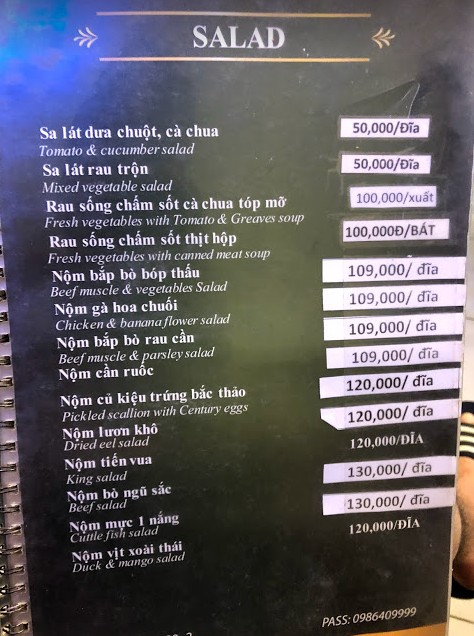 SALAD
Sa lát dưa chuột, cà chua 50,000/Đĩa
Tomato & cucumber salad
Sa lát rau trộn 50,000/Đĩa
Mixed vegetable salad
Rau sống chấm sốt cà chua tóp mỡ 100,000/xuất
Fresh vegetables with Tomato & Greaves soup
Rau sống chấm sốt thịt hộp 100,000Đ/BÁT
Fresh vegetables with canned meat soup
Nộm bắp bò bóp thấu 109,000/ đĩa
Beef muscle & vegetables Salad
Nộm gà hoa chuối 109,000/ đĩa
Chicken & banana flower salad
Nộm bắp bò rau cần 109,000/ đĩa
Beef muscle & parsley salad
Nộm cần ruốc 109,000/ đĩa
120,000/ đĩa
Nộm củ kiệu trứng bắc thảo
Pickled scallion with Century eggs
Nộm lươn khô 120,000/ đĩa
Dried eel salad
Nộm tiến vua 120,000/ĐĨA
King salad
Nộm bò ngũ sắc 130,000/ đĩa
Beef salad
Nộm mực 1 nắng 130,000/ đĩa
Cuttle fish salad
Nộm vịt xoài thái 120,000/ĐĨA
Duck & mango salad
PASS: 0986409999